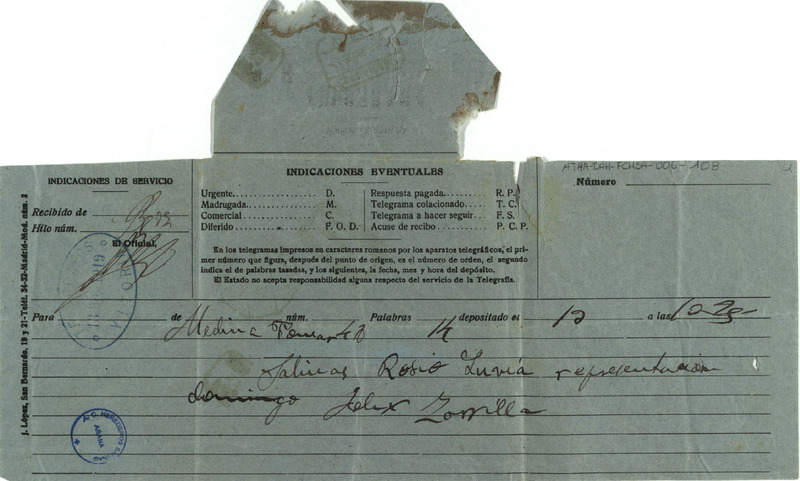 ATHA-DAH-FCHSA-006-108
INDICACIONES DE SERVICIO
Recibido de
Hilo núm.
El Oficial,
INDICACIONES EVENTUALES
Urgente D.
Madrugada M.
Comercial C.
Diferido F. O. D.
Respuesta pagada R. P.
Telegrama colacionado T. C.
Telegrama a hacer seguir F. S.
Acuse de recibo P. C. P.
En los telegramas impresos en caracteres romanos por los aparatos telegráficos, el pri-
mer número que figura, después del punto de origen, es el número de orden, el segundo
indica el de palabras tasadas, y los siguientes, la fecha, mes y hora del depósito.
El Estado no acepta responsabilidad alguna respecto del servicio de la Telegrafía.
Número
Para de Medina Pomar núm. Palabras 14 depositado el 12 a las 10-25
Salinas Rosio Luvia representación
domingo Felix Zorrilla
J. López, San Bernardo, 19 y 21-Teléf. 34-32-Madrid-Mod. núm. 2
A. C. HEREDEROS SALINAS